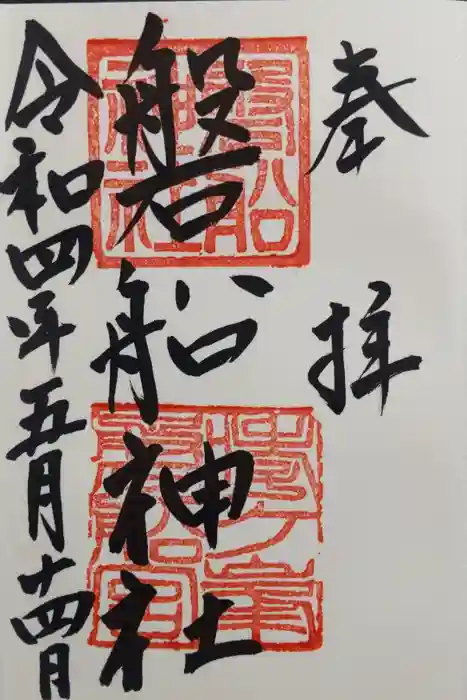 奉拝
磐船神社
令和四年五月十四日